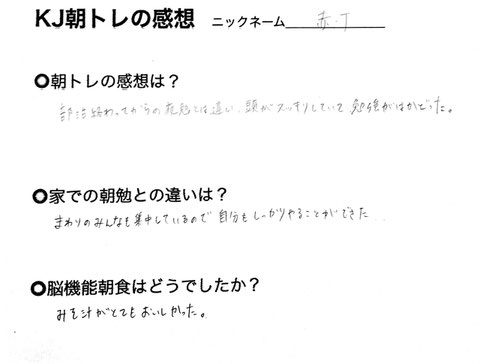 KJ朝トレの感想 ニックネーム 赤.T
○朝トレの感想は？
部活終わってからの夜勉とは違い、頭がスッキリしていて勉強がはかどった。
○家での朝勉との違いは？
まわりのみんなも集中しているので自分もしっかりやることができた
○脳機能朝食はどうでしたか？
みそ汁がとてもおいしかった。